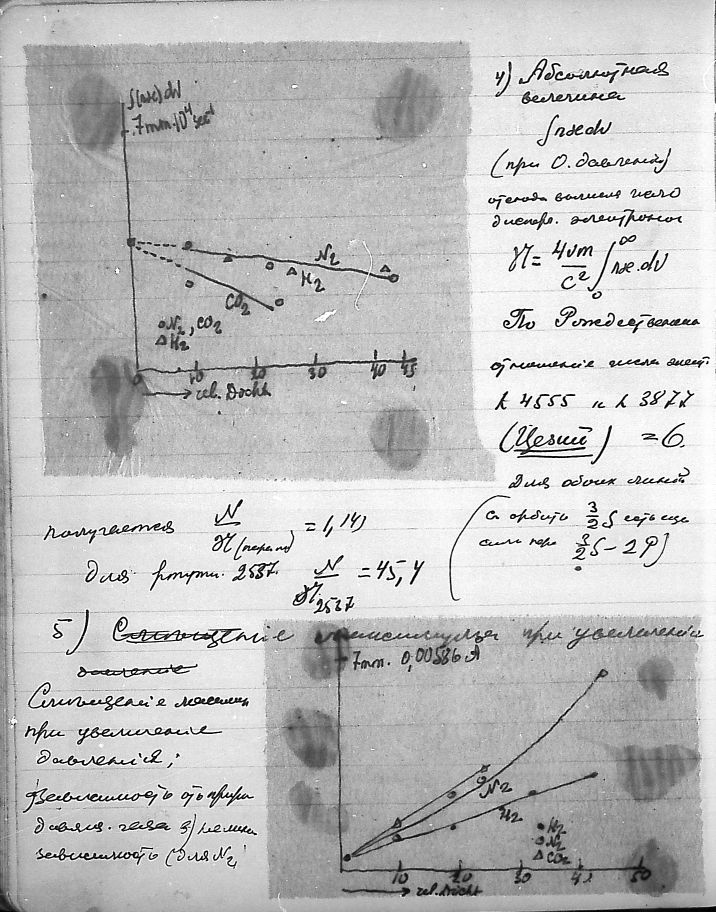 ∫(nϰ)dν
7mm. 10⁴ sec⁻¹
N₂
H₂
CO₂
N₂, CO₂
H₂
0 10 20 30 40 45
rel. Dicht
4) Абсолютная
величина
∫nϰdν
(при 0. давленіи)
отсюда число
дисперс. электронов
𝔑 = 4νm/c² ∫₀^∞ nϰ.dν
По Рождественск
отношеніе числа элект.
λ 4555 и λ 3877
(Цезий) = 6.
для обоих линій
(
орбиты 3/2 S есть еще
3/2 S – 2P)
получается N/𝔑 = 1,14)
для ртути. 2537. N/𝔑₂₅₃₇ = 45,4
5) Смѣщеніе максимума при увеличеніи
давленіе
7mm. 0,00586 A
Смѣщеніе максим
при увеличеніе
давленія;
Зависимость отъ приро
давящ. газа
зависимость (для N₂,
N₂
H₂
H₂
N₂
CO₂
10 20 30 40 50
rel. Dicht